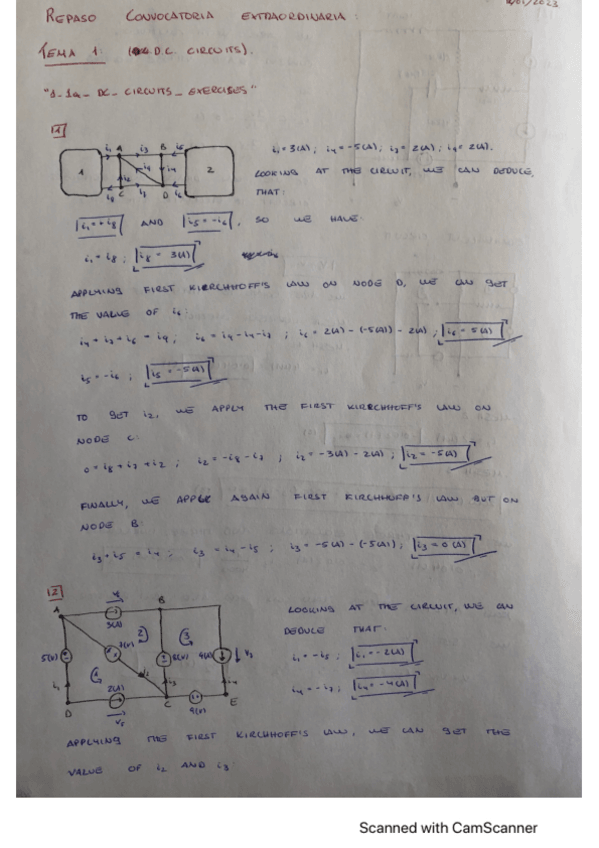 REPASO CONVOCATORIA EXTRAORDINARIA:
/01/2023
TEMA 1: D.C. CIRCUITS).
"1-1a- DC- CIRCUITS- EXERCISES"
1
i₁ A i₃ B i₅
1 2
i₈ C i₇ D i₆
i₁=3(A); i₄=-5(A); i₇=2(A); i₉=2(A).
LOOKING AT THE CIRCUIT, WE CAN DEDUCE,
THAT:
i₁=+i₈ AND i₅=-i₆, SO WE HAVE:
i₁=i₈; i₈=3(A)
APPLYING FIRST KIRRCHHOFF'S LAW ON NODE D, WE CAN GET
THE VALUE OF i₆:
i₄+i₇+i₆=i₉; i₆=i₉-i₄-i₇; i₆=2(A)-(-5(A))-2(A); i₆=5(A)
i₅=-i₆; i₅=-5(A)
TO GET i₂, WE APPLY THE FIRST KIRRCHHOFF'S LAW ON
NODE C:
0=i₈+i₇+i₂; i₂=-i₈-i₇; i₂=-3(A)-2(A); i₂=-5(A)
FINALLY, WE APPLY AGAIN FIRST KIRCHHOFF'S LAW BUT ON
NODE B:
i₃+i₅=i₄; i₃=i₄-i₅; i₃=-5(A)-(-5(A)); i₃=0(A)
2
A B
3(A)
5(V) 2 3 4(A)
1
i₁ 2(A) i₃ i₄
D C E
LOOKING AT THE CIRCUIT, WE CAN
DEDUCE THAT:
i₁=-i₅; i₁=-2(A)
i₄=-i₇; i₄=-4(A)
APPLYING THE FIRST KIRCHHOFF'S LAW, WE CAN GET THE
VALUE OF i₂ AND i₃
Scanned with CamScanner